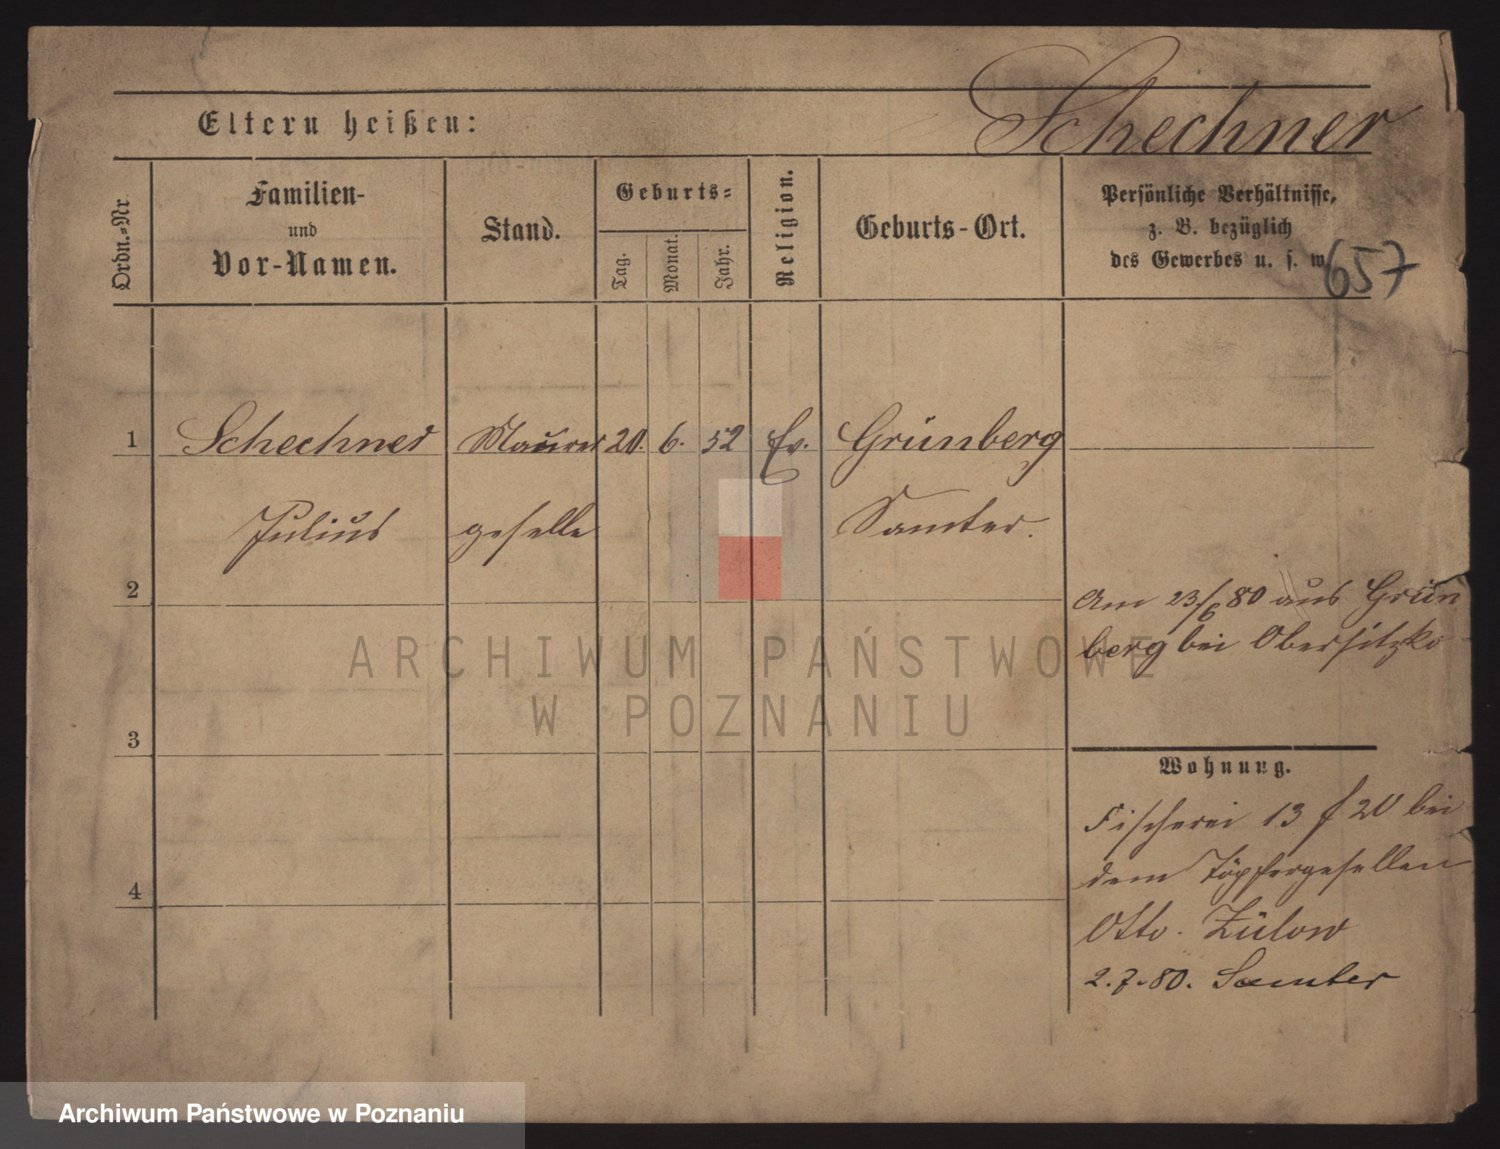 Schechner
Eltern heißen:
Ordn.-Nr
Familien-
und
Vor-Namen.
Stand.
Geburts-
Tag.
Monat.
Jahr.
Religion.
Geburts-Ort.
Persönliche Verhältnisse,
z. B. bezüglich
des Gewerbes u. s. w.
657
1 Schechner Maurer 20. 6. 52 Ev. Grünberg
Julius geselle Samter.
2
Am 23/6 80 aus Grün
berg bei Obersitzko
3
Wohnung.
Fischerei 13 f 20 bei
dem Töpfergesellen
4
Otto Zülow
2.7.80. Samter
ARCHIWUM PAŃSTWOWE
W POZNANIU
Archiwum Państwowe w Poznaniu